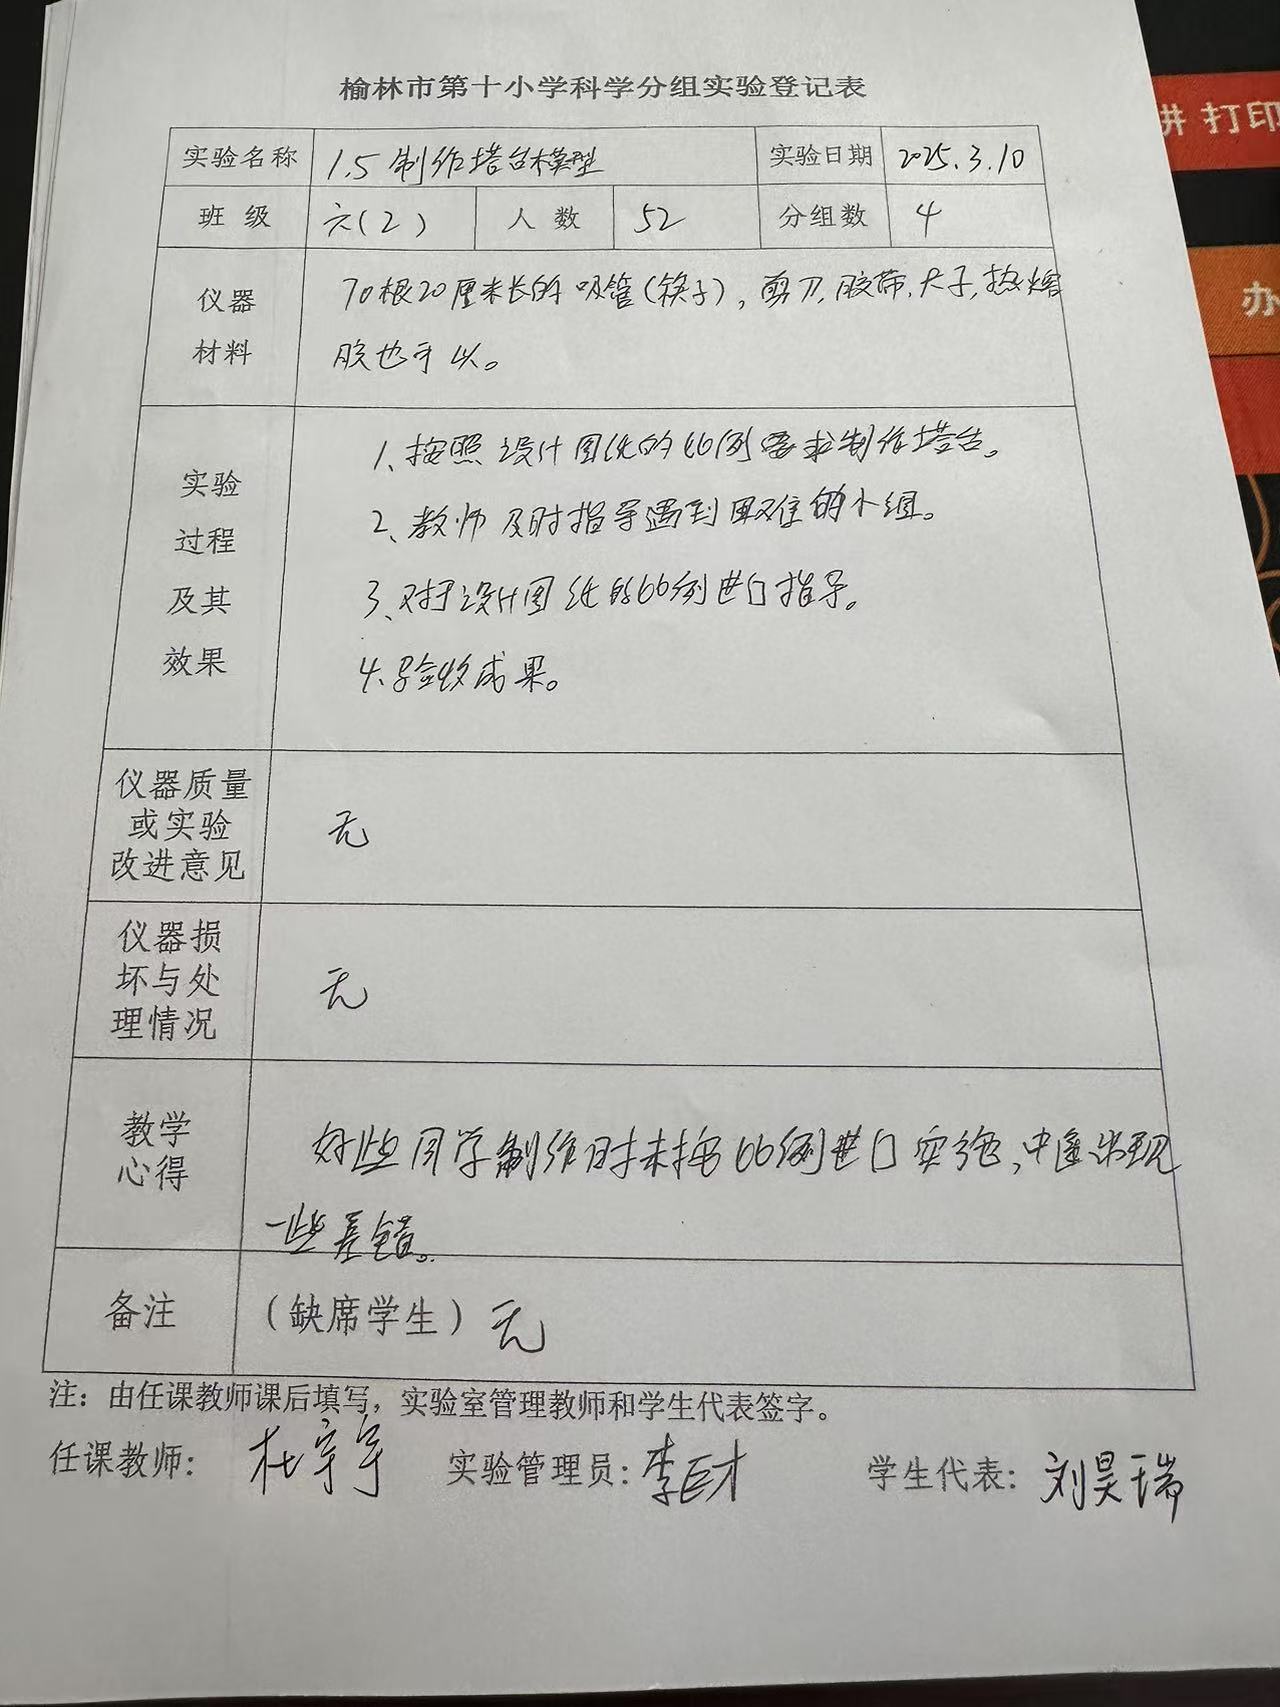 榆林市第十小学科学分组实验登记表
实验名称 1.5 制作塔台模型 实验日期 2025.3.10
班 级 六(2) 人 数 52 分组数 4
仪器
材料
70根20厘米长的吸管(筷子),剪刀,胶带,尺子,热熔
胶也可以。
实验
过程
及其
效果
1、按照设计图纸的比例要求制作塔台。
2、教师及时指导遇到困难的小组。
3、对于设计图纸的比例进行指导。
4、验收成果。
仪器质量
或实验
改进意见
无
仪器损
坏与处
理情况
无
教学
心得
好些同学制作时未按比例进行实施,中途出现
一些差错。
备注 (缺席学生)无
注:由任课教师课后填写,实验室管理教师和学生代表签字。
任课教师: 杜宇宇 实验管理员: 李巨才 学生代表: 刘昊瑞
打印
办